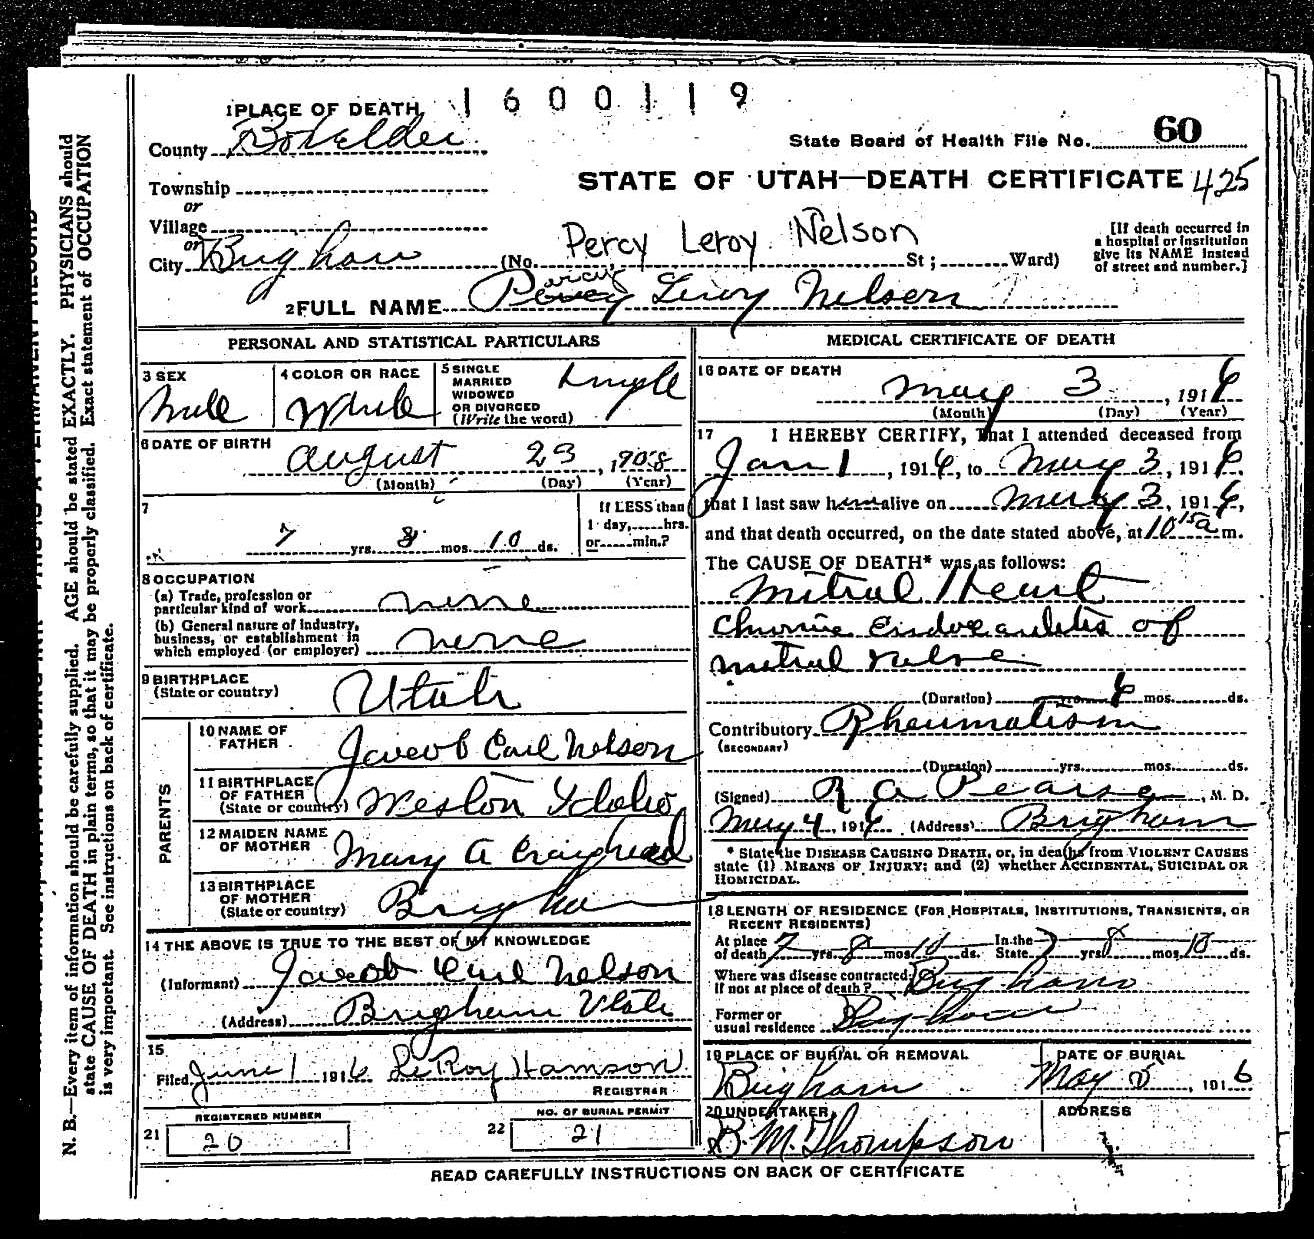 1 6 0 0 1 1 9
1 PLACE OF DEATH
County Boxelder
State Board of Health File No. 60
Township
or
STATE OF UTAH—DEATH CERTIFICATE 425
Village
or
City Brigham (No. Percy Leroy Nelson St; Ward)
[If death occurred in a hospital or institution give its NAME instead of street and number.]
2 FULL NAME Percy Leroy Nelson
PERSONAL AND STATISTICAL PARTICULARS
3 SEX
Male
4 COLOR OR RACE
White
5 SINGLE MARRIED WIDOWED OR DIVORCED (Write the word)
Single
6 DATE OF BIRTH
August 23, 1908
(Month) (Day) (Year)
7
7 yrs. 8 mos. 10 ds.
If LESS than 1 day, hrs. or min.?
8 OCCUPATION
(a) Trade, profession or particular kind of work none
(b) General nature of industry, business, or establishment in which employed (or employer) none
9 BIRTHPLACE
(State or country) Utah
PARENTS
10 NAME OF FATHER Jacob Earl Nelson
11 BIRTHPLACE OF FATHER (State or country) Weston Idaho
12 MAIDEN NAME OF MOTHER Mary A Craighead
13 BIRTHPLACE OF MOTHER (State or country) Brigham
14 THE ABOVE IS TRUE TO THE BEST OF MY KNOWLEDGE
(Informant) Jacob Earl Nelson
(Address) Brigham Utah
15
Filed June 1 1916 LeRoy Hamson
REGISTRAR
21 REGISTERED NUMBER 20
22 NO. OF BURIAL PERMIT 21
MEDICAL CERTIFICATE OF DEATH
16 DATE OF DEATH
May 3, 1916
(Month) (Day) (Year)
17 I HEREBY CERTIFY, That I attended deceased from
Jan 1, 1916, to May 3, 1916,
that I last saw him alive on May 3, 1916,
and that death occurred, on the date stated above, at 10 15 a m.
The CAUSE OF DEATH* was as follows:
Mitral Heart
Chronic Endocarditis of
mitral valve
(Duration) yrs. 6 mos. ds.
Contributory Rheumatism
(SECONDARY)
(Duration) yrs. mos. ds.
(Signed) R A Pearse, M. D.
May 4 1916 (Address) Brigham
* State the DISEASE CAUSING DEATH, or, in deaths from VIOLENT CAUSES
state (1) MEANS OF INJURY; and (2) whether ACCIDENTAL, SUICIDAL OR
HOMICIDAL.
18 LENGTH OF RESIDENCE (FOR HOSPITALS, INSTITUTIONS, TRANSIENTS, OR
RECENT RESIDENTS)
At place of death 7 yrs. 8 mos. 10 ds. In the State 7 yrs. 8 mos. 10 ds.
Where was disease contracted, if not at place of death? Brigham
Former or usual residence Brigham
19 PLACE OF BURIAL OR REMOVAL
Brigham
DATE OF BURIAL
May 5, 1916
20 UNDERTAKER
B. M. Thompson
ADDRESS
READ CAREFULLY INSTRUCTIONS ON BACK OF CERTIFICATE
N. B.—Every item of information should be carefully supplied. AGE should be stated EXACTLY. PHYSICIANS should
state CAUSE OF DEATH in plain terms, so that it may be properly classified. Exact statement of OCCUPATION
is very important. See instructions on back of certificate.